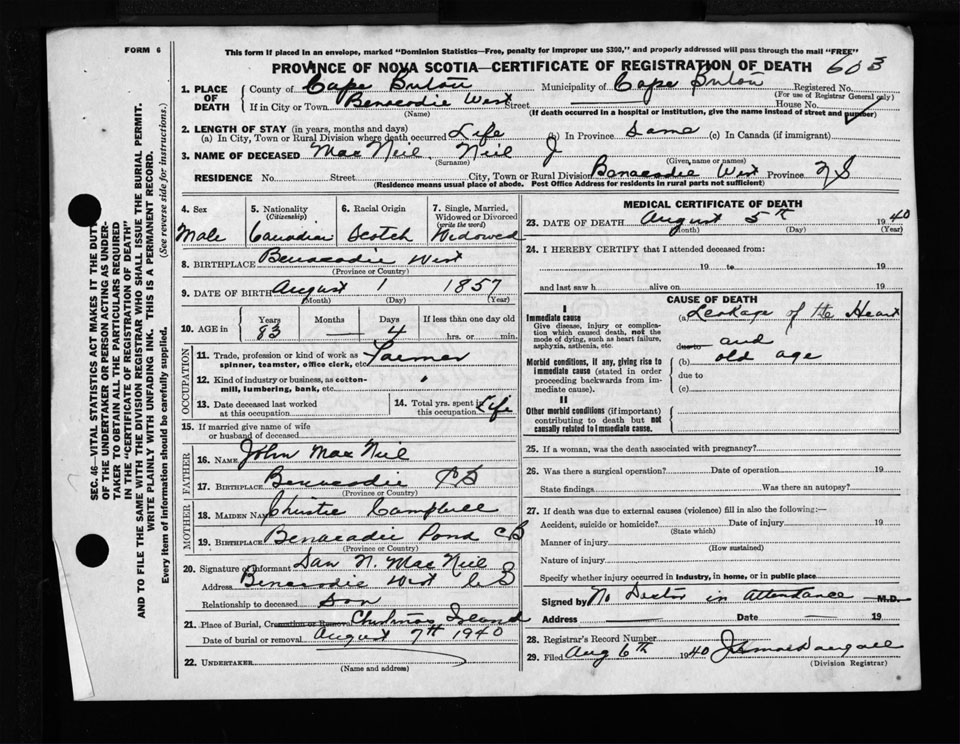 FORM 6
This form if placed in an envelope, marked "Dominion Statistics—Free, penalty for improper use $300," and properly addressed will pass through the mail "FREE"
PROVINCE OF NOVA SCOTIA—CERTIFICATE OF REGISTRATION OF DEATH 603
1. PLACE OF DEATH
County of Cape Breton Municipality of Cape Breton Registered No.
(For use of Registrar General only)
If in City or Town Benacadie West Street House No.
(Name) (If death occurred in a hospital or institution, give the name instead of street and number)
2. LENGTH OF STAY (in years, months and days)
(a) In City, Town or Rural Division where death occurred Life (b) In Province Same (c) In Canada (if immigrant)
3. NAME OF DECEASED Mac Neil, Neil J
(Surname) (Given name or names)
RESIDENCE No. Street City, Town or Rural Division Benacadie West Province N S
(Residence means usual place of abode. Post Office Address for residents in rural parts not sufficient)
SEC. 46—VITAL STATISTICS ACT MAKES IT THE DUTY
OF THE UNDERTAKER OR PERSON ACTING AS UNDER-
TAKER TO OBTAIN ALL THE PARTICULARS REQUIRED
IN THE "CERTIFICATE OF REGISTRATION OF DEATH"
AND TO FILE THE SAME WITH THE DIVISION REGISTRAR WHO SHALL ISSUE THE BURIAL PERMIT.
WRITE PLAINLY WITH UNFADING INK. THIS IS A PERMANENT RECORD.
Every item of Information should be carefully supplied. (See reverse side for instructions.)
4. Sex
Male
5. Nationality
(Citizenship)
Canadian
6. Racial Origin
Scotch
7. Single, Married,
Widowed or Divorced
(write the word)
Widowed
8. BIRTHPLACE Benacadie West
(Province or Country)
9. DATE OF BIRTH August 1 1857
(Month) (Day) (Year)
10. AGE in
Years Months Days If less than one day old
83 — 4 hrs. or min.
OCCUPATION
11. Trade, profession or kind of work as Farmer
spinner, teamster, office clerk, etc.
12. Kind of industry or business, as cotton-
mill, lumbering, bank, etc.
13. Date deceased last worked
at this occupation
14. Total yrs. spent in
this occupation Life
15. If married give name of wife
or husband of deceased
FATHER
16. Name John Mac Neil
17. Birthplace Benacadie C B
(Province or Country)
MOTHER
18. Maiden Name Christie Campbell
19. Birthplace Benacadie Pond C B
(Province or Country)
20. Signature of Informant Dan N. Mac Neil
Address Benacadie West
Relationship to deceased Son
21. Place of Burial, Cremation or Removal Christmas Island
Date of burial or removal August 7th 1940
22. UNDERTAKER
(Name and address)
MEDICAL CERTIFICATE OF DEATH
23. DATE OF DEATH August 5th 1940
(Month) (Day) (Year)
24. I HEREBY CERTIFY that I attended deceased from:
19 to 19
and last saw h alive on 19
CAUSE OF DEATH
I
Immediate cause
Give disease, injury or complica-
tion which caused death, not the
mode of dying, such as heart failure,
asphyxia, asthenia, etc.
(a) Leakage of the Heart
due to and
Morbid conditions, if any, giving rise to
immediate cause (stated in order
proceeding backwards from im-
mediate cause).
(b) old age
due to
(c)
II
Other morbid conditions (if important)
contributing to death but not
causally related to immediate cause.
25. If a woman, was the death associated with pregnancy?
26. Was there a surgical operation? Date of operation 19
State findings Was there an autopsy?
27. If death was due to external causes (violence) fill in also the following:—
Accident, suicide or homicide? Date of injury 19
(State which)
Manner of injury
(How sustained)
Nature of injury
Specify whether injury occurred in industry, in home, or in public place
Signed by No Doctor in attendance M.D.
Address Date 19
28. Registrar's Record Number
29. Filed Aug 6th 1940
(Division Registrar)